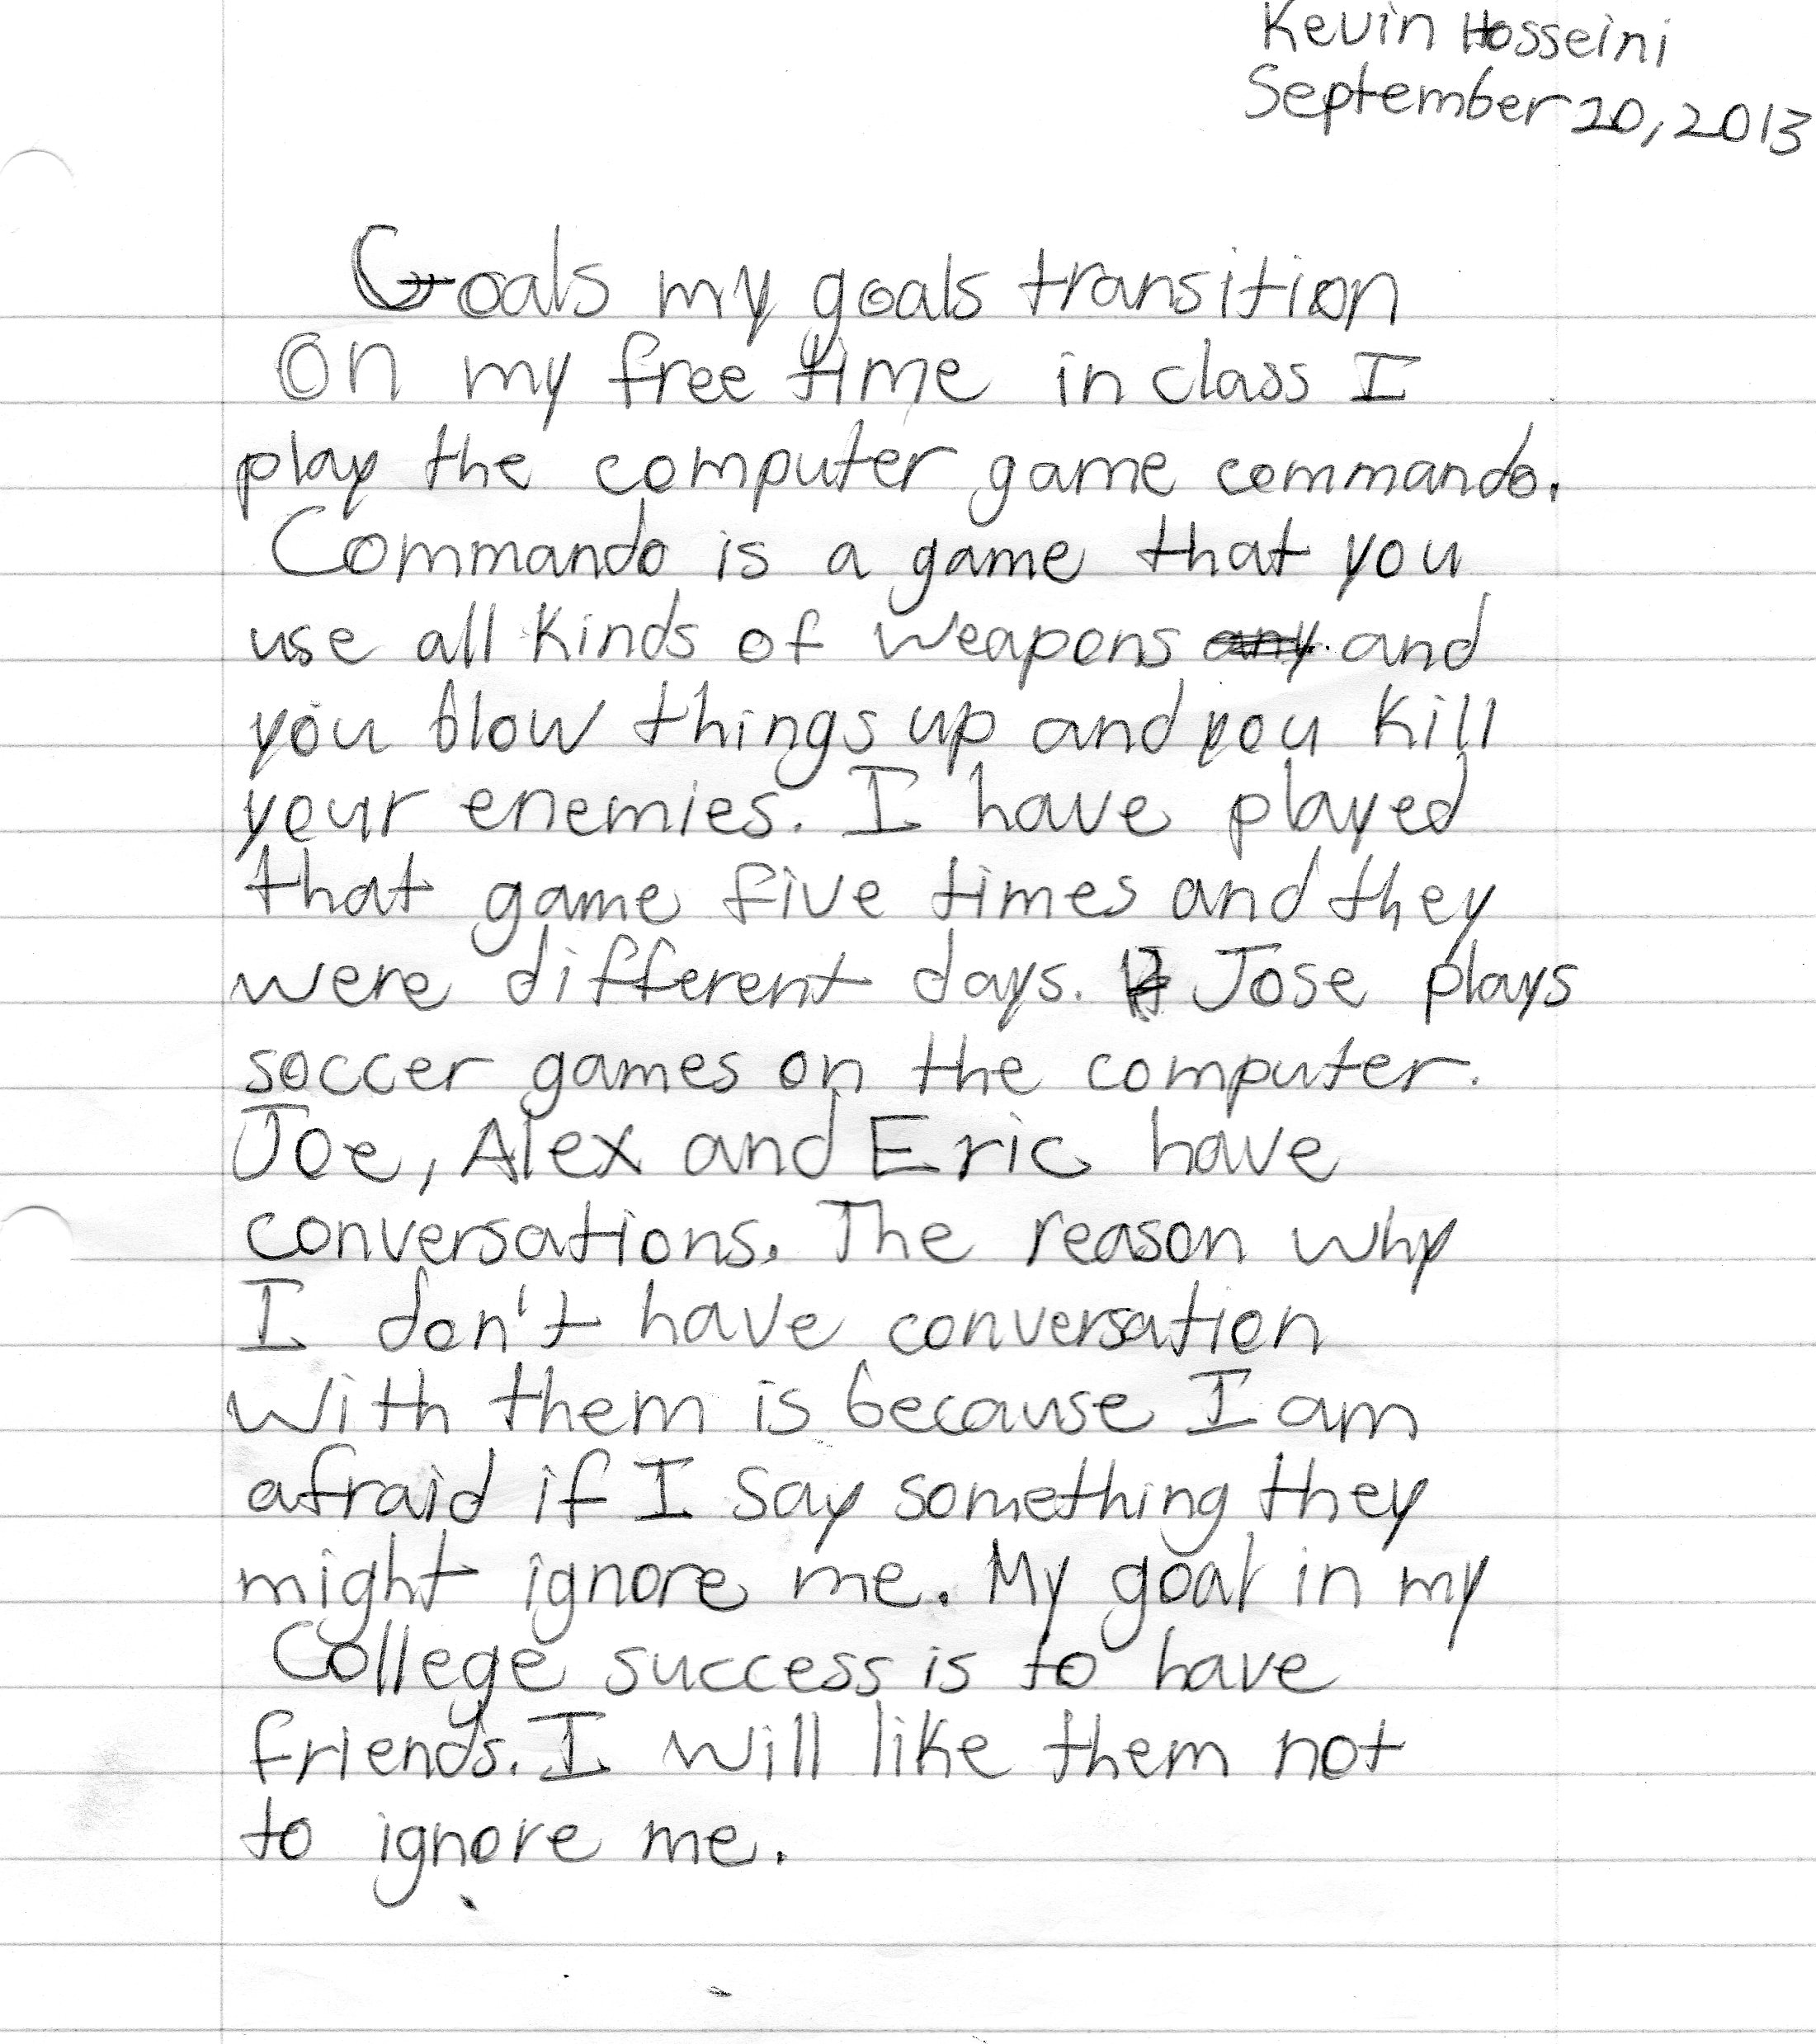 Kevin Hosseini
September 20, 2013
Goals my goals transition
On my free time in class I
play the computer game commando.
Commando is a game that you
use all kinds of weapons any and
you blow things up and you kill
your enemies. I have played
that game five times and they
were different days. Jose plays
soccer games on the computer.
Joe, Alex and Eric have
conversations. The reason why
I don't have conversation
with them is because I am
afraid if I say something they
might ignore me. My goal in my
College success is to have
friends. I will like them not
to ignore me.